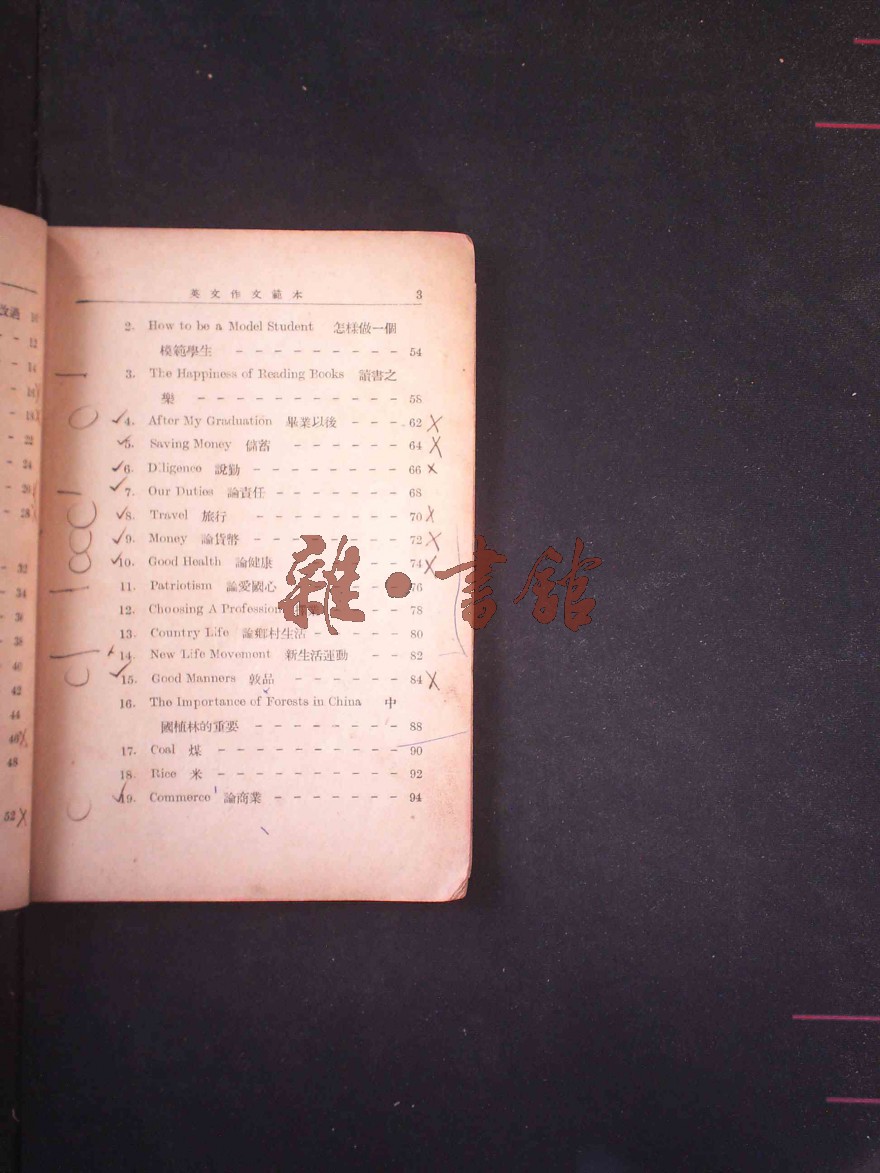 英文作文範本 3
2. How to be a Model Student 怎樣做一個
模範學生 - - - - - - - - - 54
3. The Happiness of Reading Books 讀書之
樂 - - - - - - - - - - - 58
4. After My Graduation 畢業以後 - - - 62
5. Saving Money 儲蓄 - - - - - - 64
6. Diligence 說勤 - - - - - - - - 66
7. Our Duties 論責任 - - - - - - - 68
8. Travel 旅行 - - - - - - - - 70
9. Money 論貨幣 - - - - - - - - 72
10. Good Health 論健康 - - - - - - 74
11. Patriotism 論愛國心 - - - - - 76
12. Choosing A Profession - - - - 78
13. Country Life 論鄉村生活 - - - - - 80
14. New Life Movement 新生活運動 - - 82
15. Good Manners 敦品 - - - - - - 84
16. The Importance of Forests in China 中
國植林的重要 - - - - - - - - 88
17. Coal 煤 - - - - - - - - - - 90
18. Rice 米 - - - - - - - - - - 92
19. Commerce 論商業 - - - - - - - 94
改過
12
14
16
18
22
24
26
28
32
34
36
38
40
42
44
46
48
52
雜·書館